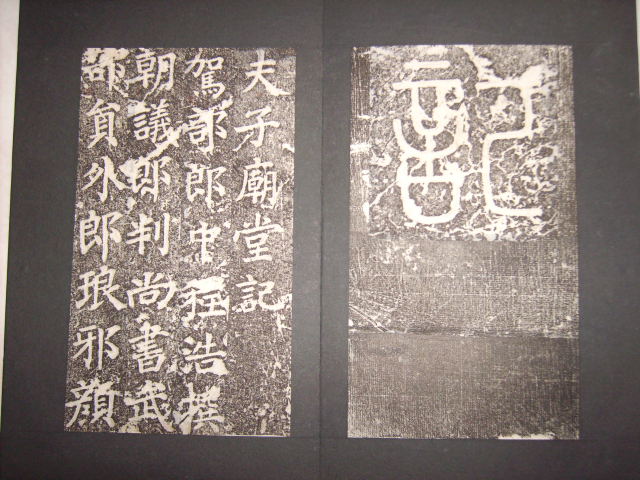 記
夫子廟堂記
駕部郎中程浩撰
朝議郎判尚書武
部員外郎琅邪顔